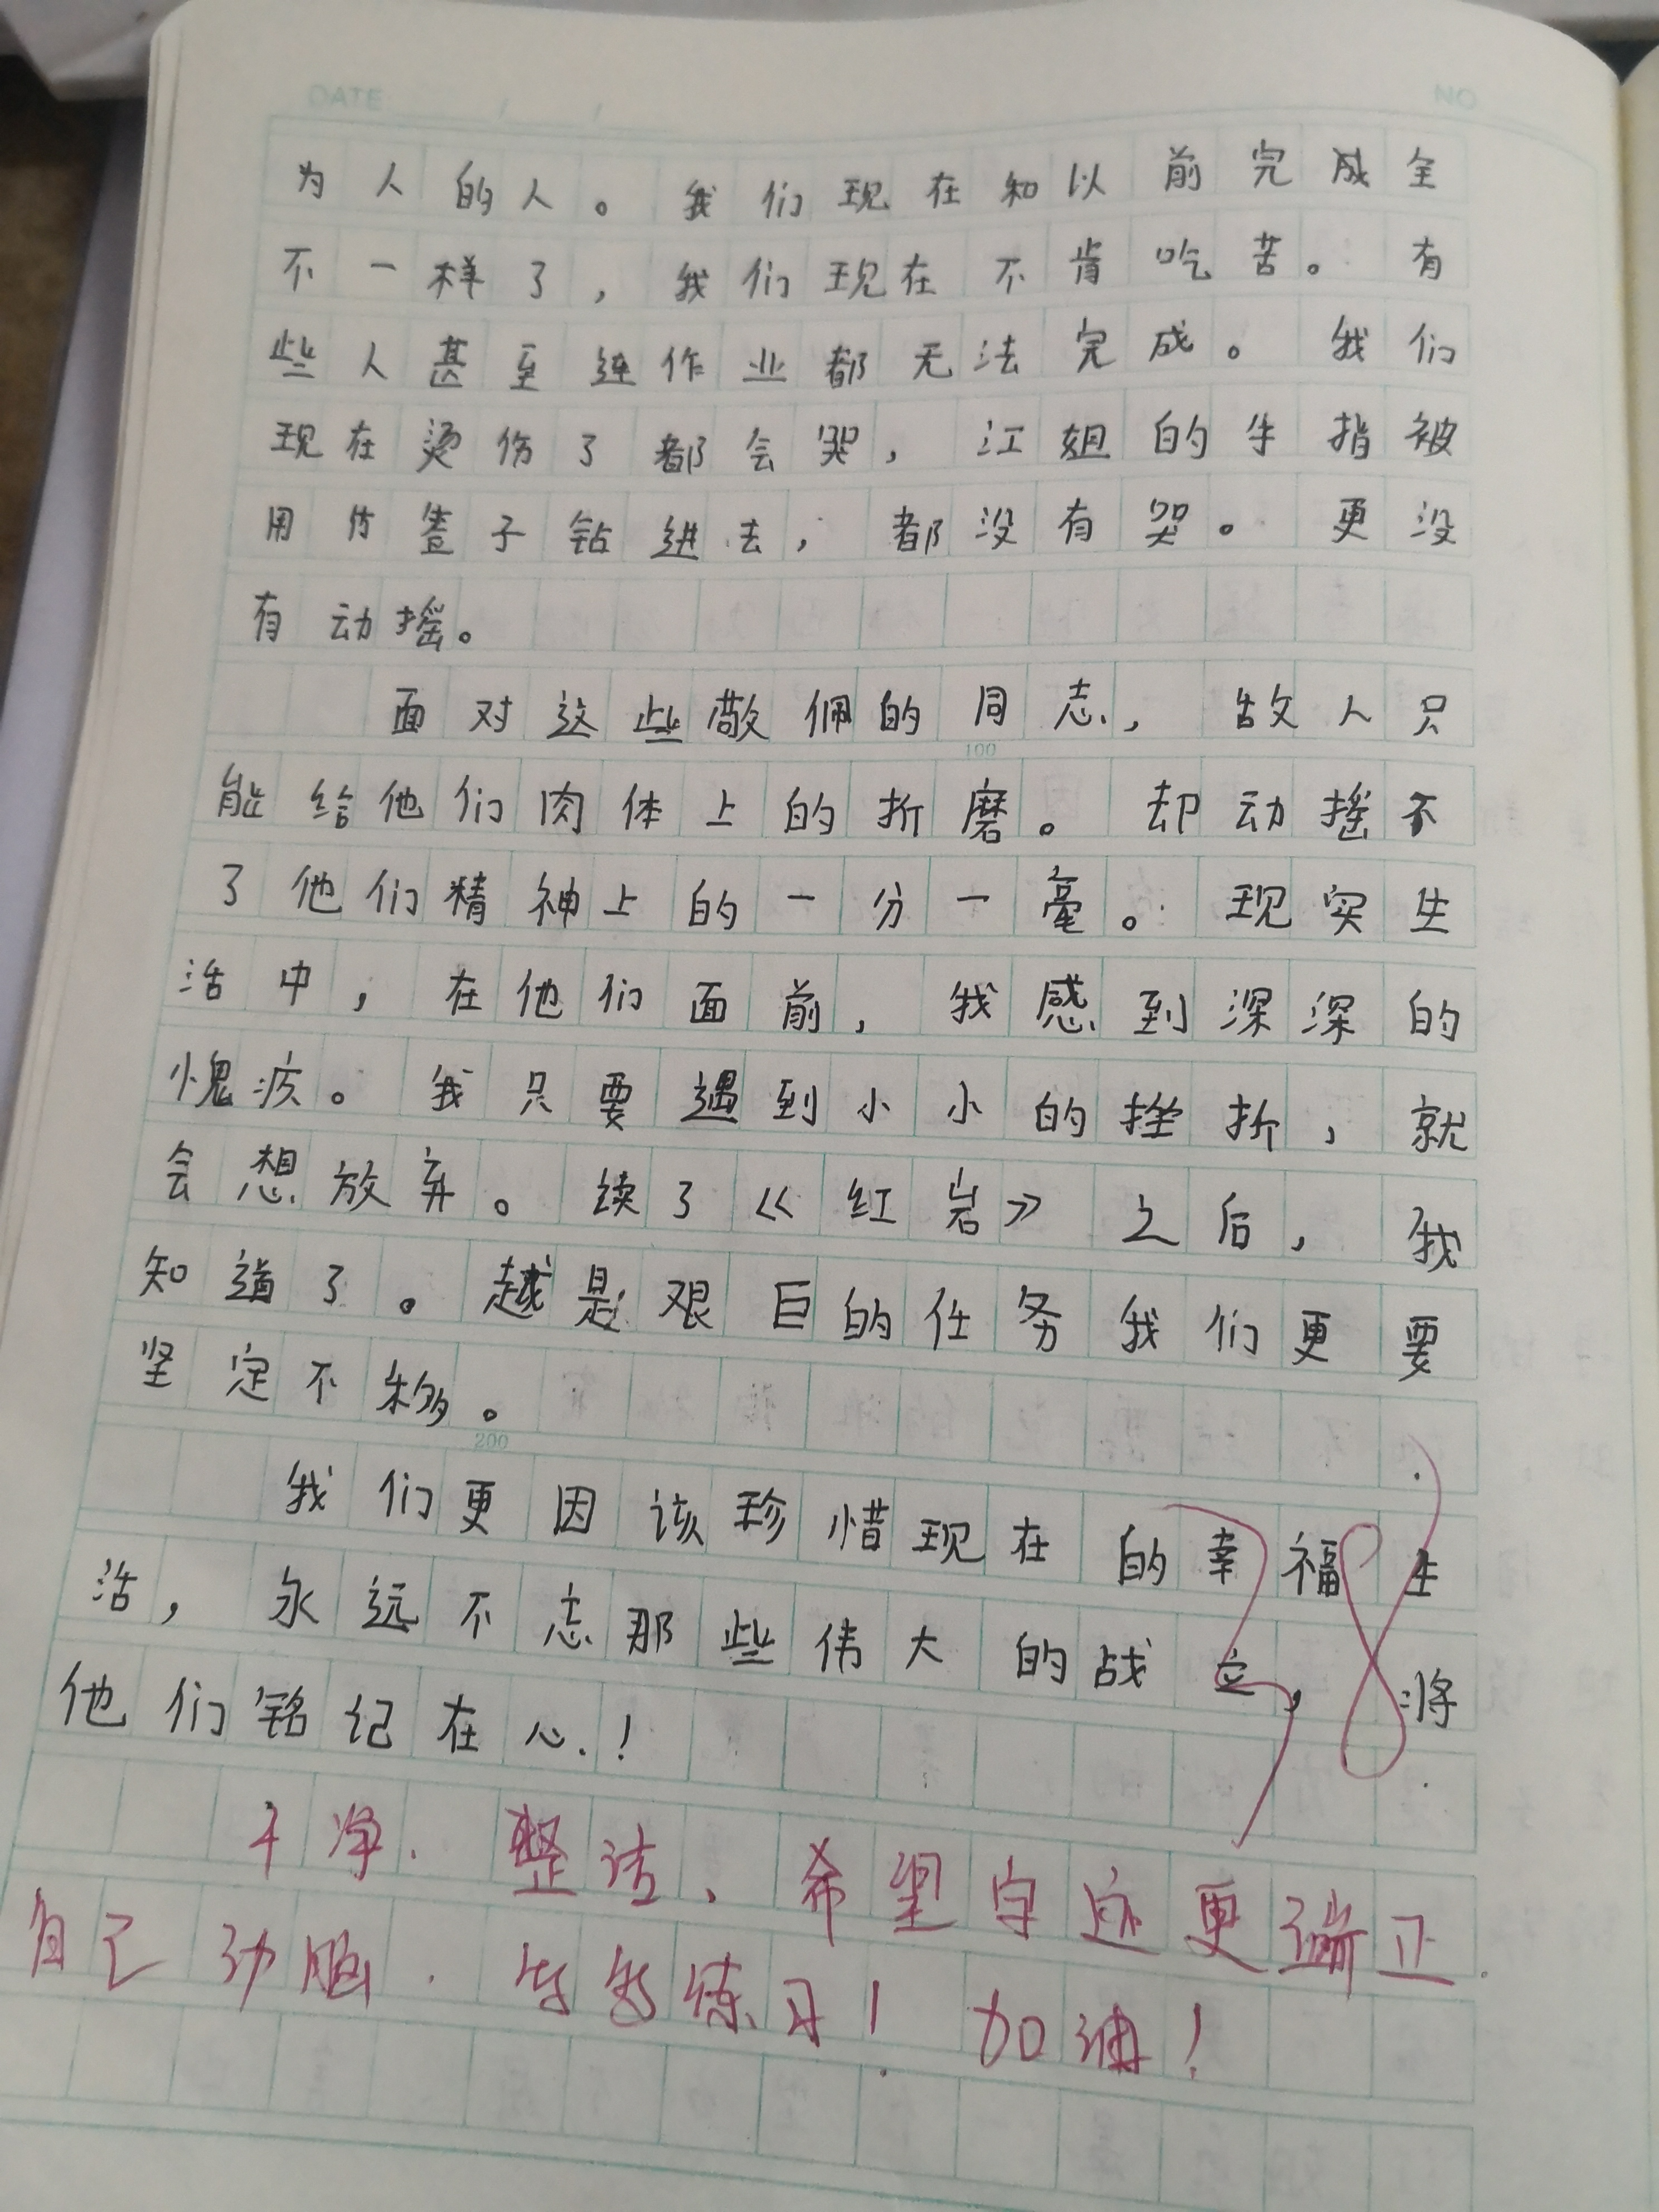 DATE / / NO
为人的人。我们现在和以前完成全
不一样了，我们现在不肯吃苦。有
些人甚至连作业都无法完成。我们
现在烫伤了都会哭，江姐的手指被
用竹签子钻进去，都没有哭。更没
有动摇。
面对这些敬佩的同志，敌人只
100
能给他们肉体上的折磨。却动摇不
了他们精神上的一分一毫。现实生
活中，在他们面前，我感到深深的
愧疚。我只要遇到小小的挫折，就
会想放弃。读了《红岩》之后，我
知道了。越是艰巨的任务我们更要
坚定不移。
200
我们更因该珍惜现在的幸福生
活，永远不忘那些伟大的战立，将
他们铭记在心！
干净.整洁、希望字迹更端正.
自己动脑.多多练习！加油！